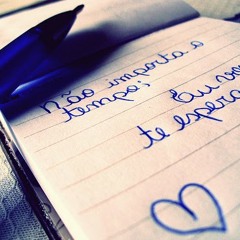 Não importa o
tempo;
Eu vou
te espera